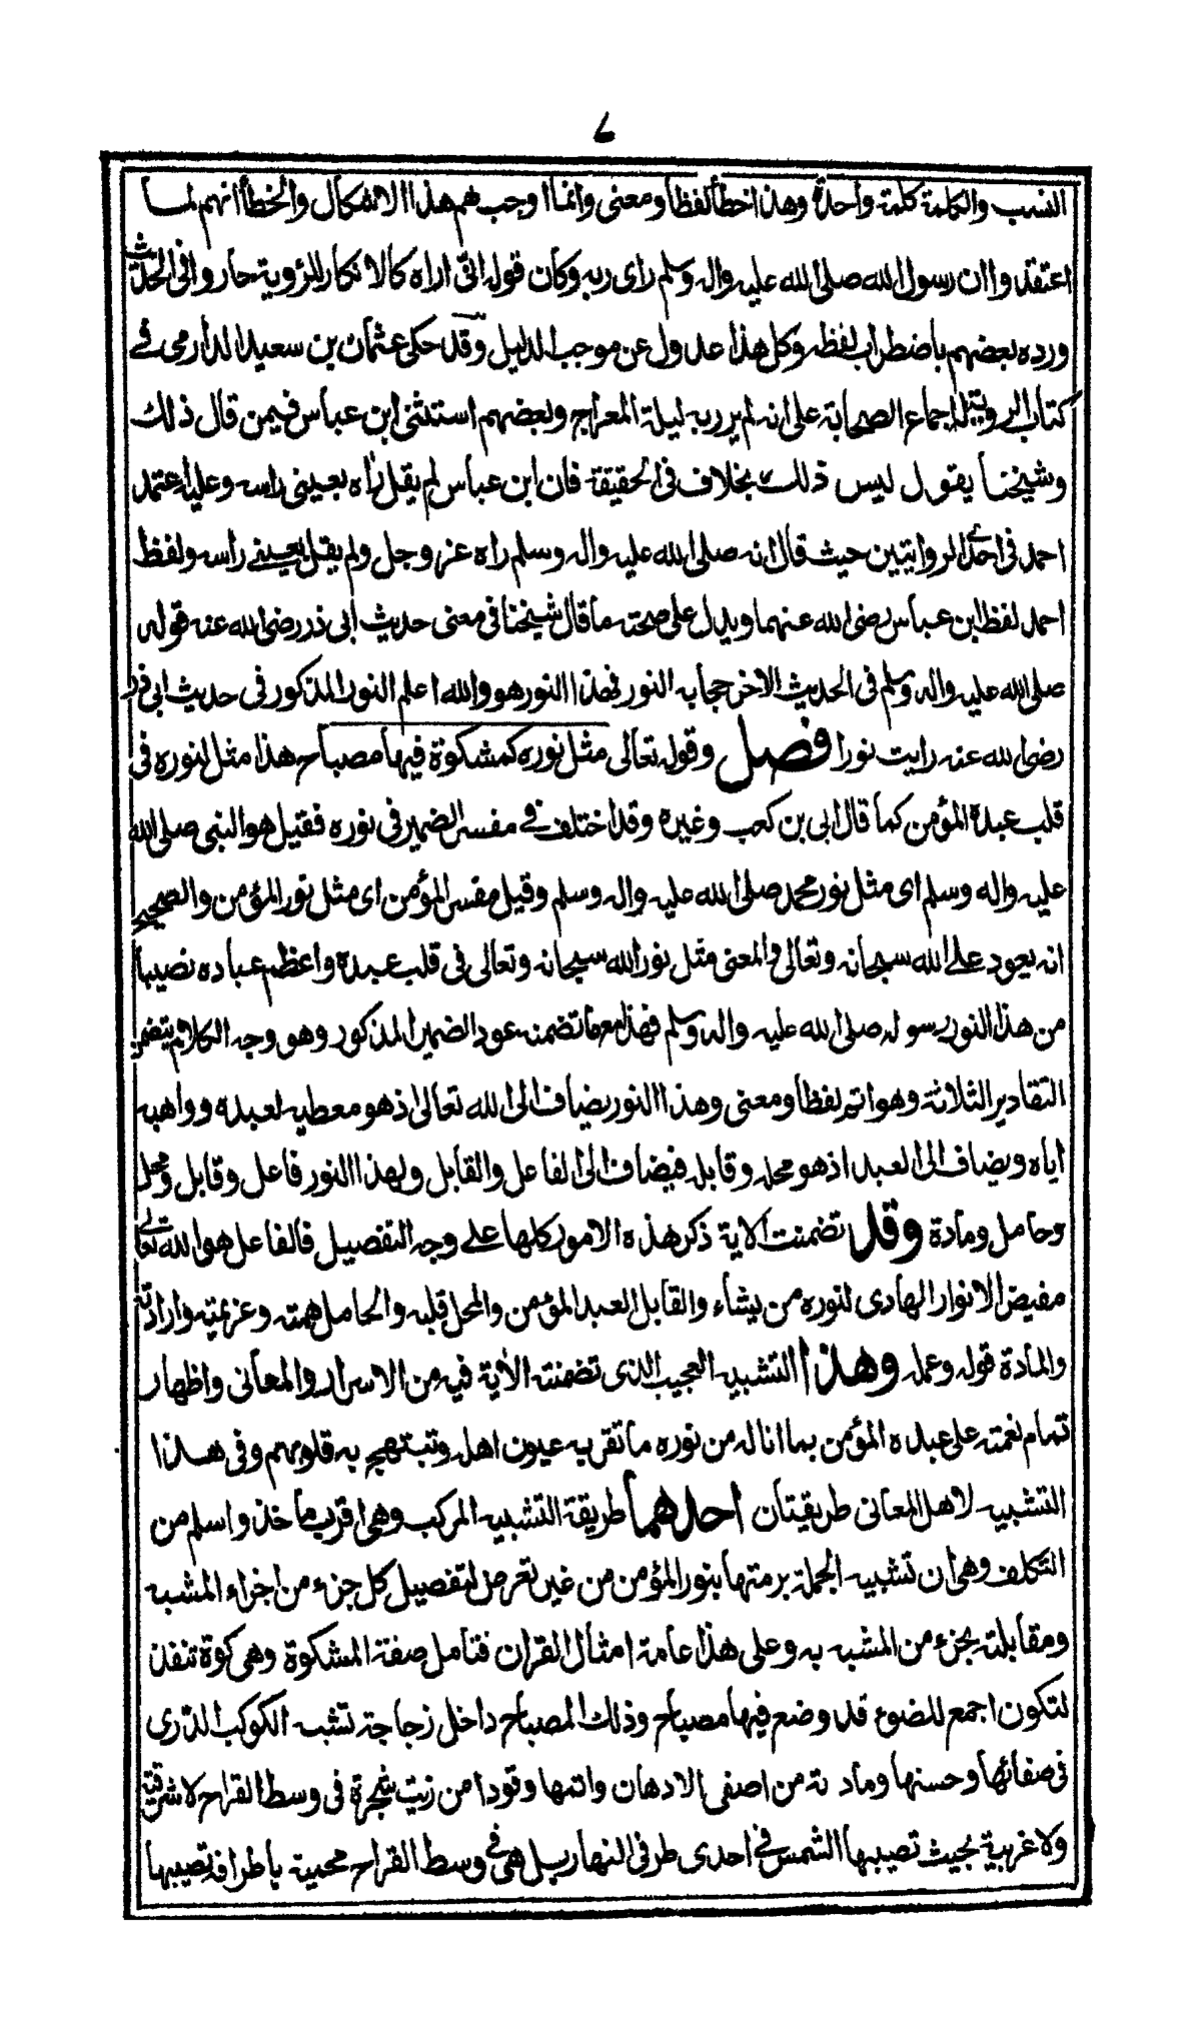 ٧
النسب والكلمة كلمة واحدة وهذا خطأ لفظا ومعنى وانما اوجب لهم هذا الاشكال والخطأ انهم لما
اعتقدوا ان رسول الله صلى الله عليه واله وسلم رأى ربه وكان قوله انى اراه كالانكار للرؤية حاروا فى الحديث
ورده بعضهم باضطراب لفظه وكل هذا عدول عن موجب الدليل وقد حكى عثمان بن سعيد الدارمى في
كتاب الروية له اجماع الصحابة على انه لم ير ربه ليلة المعراج وبعضهم استثنى ابن عباس فيمن قال ذلك
وشيخنا يقول ليس ذلك بخلاف فى الحقيقة فان ابن عباس لم يقل رأه بعينى راسه وعليه اعتمد
احمد فى احدى الروايتين حيث قال انه صلى الله عليه واله وسلم راه عز وجل ولم يقل بعينى راسه ولفظ
احمد لفظ ابن عباس رضى الله عنهما ويدل على صحته ما قال شيخنا فى معنى حديث ابى ذر رضى الله عنه قوله
صلى الله عليه واله وسلم فى الحديث الاخر حجابه النور فهذا النور هو والله اعلم النور المذكور فى حديث ابى ذر
رضى الله عنه رايت نورا فصل وقوله تعالى مثل نوره كمشكوة فيها مصباح هذا مثل لنوره فى
قلب عبده المؤمن كما قال ابى بن كعب وغيره وقد اختلف في مفسر الضمير فى نوره فقيل هو النبى صلى الله
عليه واله وسلم اى مثل نور محمد صلى الله عليه واله وسلم وقيل مفسره المؤمن اى مثل نور المؤمن والصحيح
انه يعود على الله سبحانه وتعالى والمعنى مثل نور الله سبحانه وتعالى فى قلب عبده واعظم عباده نصيبا
من هذا النور رسوله صلى الله عليه واله وسلم فهذا مع ما تضمنه عود الضمير المذكور وهو وجه الكلام يتضمن
التقادير الثلاثة وهو اتم لفظا ومعنى وهذا النور يضاف الى الله تعالى اذ هو معطيه لعبده وواهبه
اياه ويضاف الى العبد اذ هو محله وقابله فيضاف الى الفاعل والقابل ولهذا النور فاعل وقابل ومحل
وحامل ومادة وقد تضمنت الاية ذكر هذه الامور كلها على وجه التفصيل فالفاعل هو الله تعالى
مفيض الانوار الهادى لنوره من يشاء والقابل العبد المؤمن والمحل قلبه والحامل همته وعزيمته وارادته
والمادة قوله وعمله وهذا التشبيه العجيب الذى تضمنته الأية فيه من الاسرار والمعانى واظهار
تمام نعمته على عبده المؤمن بما اناله من نوره ما تقر به عيون اهله وتبتهج به قلوبهم وفى هذا
التشبيه لاهل المعانى طريقتان احدهما طريقة التشبيه المركب وهى اقرب ماخذا واسلم من
التكلف وهى ان تشبيه الجملة برمتها بنور المؤمن من غير تعرض لتفصيل كل جزء من اجزاء المشبه
ومقابلته بجزء من المشبه به وعلى هذا عامة امثال القران فتامل صفة المشكوة وهى كوة تنفذ
لتكون اجمع للضوء قد وضع فيها مصباح وذلك المصباح داخل زجاجة تشبه الكوكب الدرى
فى صفائها وحسنها ومادته من اصفى الادهان واتمها وقودا من زيت شجرة فى وسط القراح لا شرقية
ولا غربية بحيث تصيبها الشمس في احدى طرفى النهار بل هى في وسط القراح محمية باطرافه تصيبها